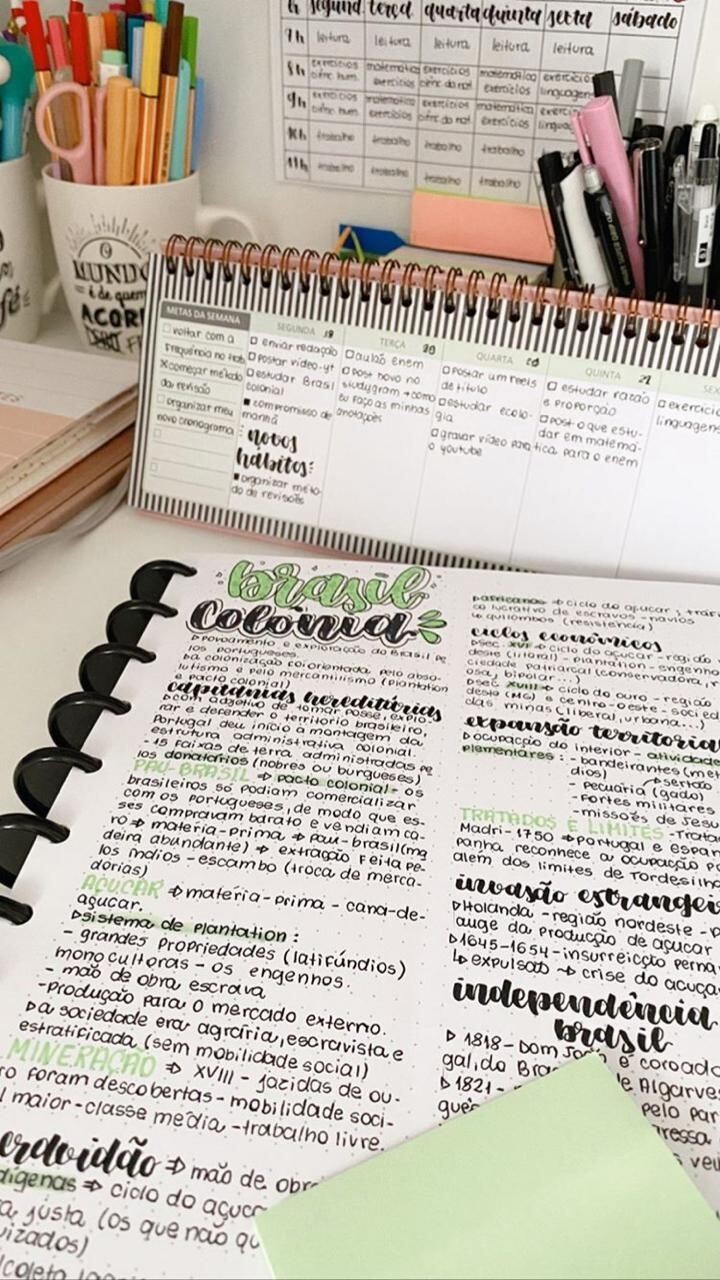 segunda terça quarta quinta sexta sábado
7h leitura leitura leitura leitura leitura
8h exercícios matemática exercícios matemática exercícios
exercícios exercícios linguagens
9h exercícios matemática exercícios matemática
exercícios exercícios
10h trabalho trabalho trabalho trabalho
11h trabalho trabalho trabalho trabalho
O MUNDO
é de quem
ACORDA
METAS DA SEMANA
voltar com a
frequência no
começar
da revisão
organizar meu
novo cronograma
SEGUNDA
enviar redação
Postar vídeo-yt
estudar Brasil
colonial
compromisso de
manhã
novos
hábitos:
organizar méto-
do de revisões
TERÇA 20
aulão enem
post novo no
studygram → como
eu faço as minhas
anotações
QUARTA
postar um reels
de título
estudar ecolo-
gia
gravar vídeo para
o youtube
QUINTA 21
estudar razão
e proporção
post o que estu-
dar em matemá-
tica para o enem
exercíc
linguagens
brasil
Colônia
povoamento e exploração do Brasil pe
los portugueses.
a colonização foi orientada pelo abso-
lutismo e pelo mercantilismo (plantation
e pacto colonial)
capitanias hereditárias
com objetivo de tomar posse, explo-
rar e defender o território brasileiro,
Portugal deu início à montagem da
estrutura administrativa colonial.
- 15 faixas de terra administradas pe
los donatários (nobres ou burgueses)
PAU-BRASIL ⇒ pacto colonial - os
brasileiros só podiam comercializar
com os portugueses, de modo que es-
ses compravam barato e vendiam ca-
ro ⇒ matéria-prima ⇒ pau-brasil (ma
deira abundante) ⇒ extração feita pe-
los índios - escambo (troca de merca-
dorias)
AÇÚCAR ⇒ matéria-prima - cana-de-
açúcar.
sistema de plantation:
- grandes propriedades (latifúndios)
monocultoras - os engenhos.
- mão de obra escrava
- produção para o mercado externo.
a sociedade era agrária, escravista e
estratificada (sem mobilidade social)
MINERAÇÃO ⇒ XVIII - jazidas de ou-
ro foram descobertas - mobilidade soci-
l maior - classe média - trabalho livre.
ervidão ⇒ mão de obr
dígenas ⇒ ciclo do açúca
a justa (os que não qu
uizados)
coleta
africanos ⇒ ciclo do açúcar; tráf
co lucrativo de escravos - navios
↳ quilombos (resistência)
ciclos econômicos
séc. XVI ⇒ ciclo do açúcar - região
deste (litoral) - plantation - engenho
ciedade patriarcal (conservadora, r
osa, bipolar...)
séc. XVIII ⇒ ciclo do ouro - região
deste (MG) e centro-oeste - socied
das minas (liberal, urbana...)
expansão territorial
ocupação do interior - atividade
plementares: - bandeirantes (met
dios) sertão
- pecuária (gado)
- fortes militares
- missões de Jesu
TRATADOS E LIMITES - Trata
Madri - 1750 ⇒ Portugal e Espan
panha reconhece a ocupação po
além dos limites de Tordesilha
invasão estrangei
Holanda - região nordeste - p
auge da produção de açúcar
1645-1654 - insurreição perna
↳ expulsão ⇒ crise do açúca
independência
brasil
1818 - Dom João é coroado
gal, do Bra e Algarve
1821 - pelo par
guês ressa
veu